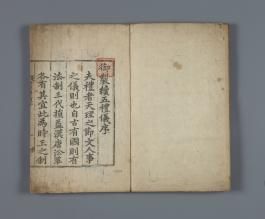 御製續五禮儀序
夫禮者天理之節文人事
之儀則也自古有國則有
法制三代損益漢唐沿革
各有其宜此爲時王之制